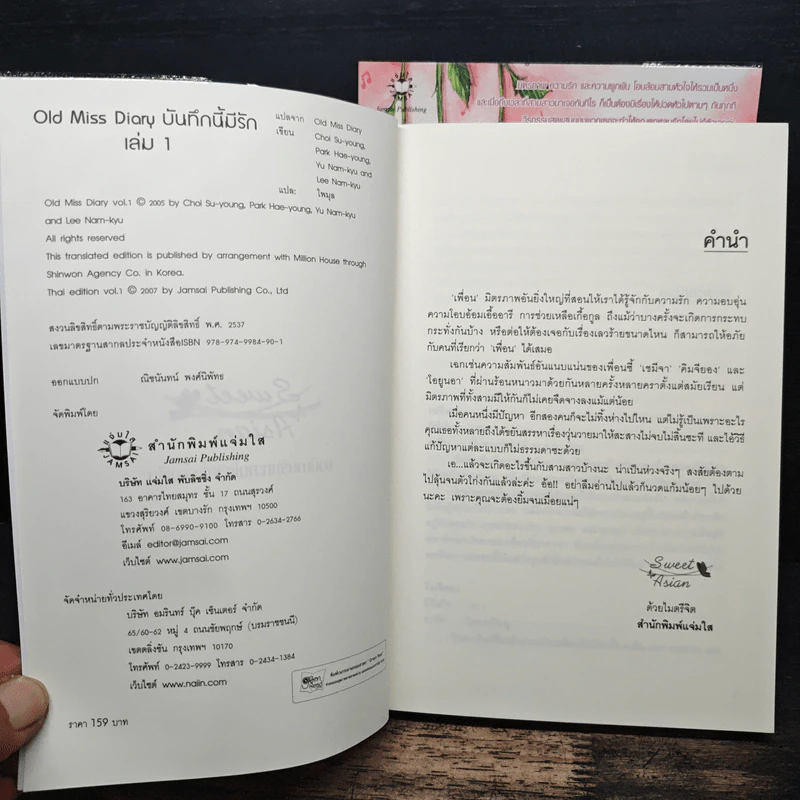 Old Miss Diary บันทึกนี้มีรัก
เล่ม 1
แปลจาก Old Miss Diary
เขียน Choi Su-young,
Park Hae-young,
Yu Nam-kyu and
Lee Nam-kyu
แปล: ไพบุล
Old Miss Diary vol.1 © 2005 by Choi Su-young, Park Hae-young, Yu Nam-kyu
and Lee Nam-kyu
All rights reserved
This translated edition is published by arrangement with Million House through
Shinwon Agency Co. in Korea.
Thai edition vol.1 © 2007 by Jamsai Publishing Co., Ltd
สงวนลิขสิทธิ์ตามพระราชบัญญัติลิขสิทธิ์ พ.ศ. 2537
เลขมาตรฐานสากลประจำหนังสือISBN 978-974-9984-90-1
ออกแบบปก ณิชนันทน์ พงศ์นิพัทธ
จัดพิมพ์โดย
แจ่มใส
JAMSAI
สำนักพิมพ์แจ่มใส
Jamsai Publishing
บริษัท แจ่มใส พับลิชชิ่ง จำกัด
163 อาคารไทยสมุทร ชั้น 17 ถนนสุรวงศ์
แขวงสุริยวงศ์ เขตบางรัก กรุงเทพฯ 10500
โทรศัพท์ 08-6990-9100 โทรสาร 0-2634-2766
อีเมล์ editor@jamsai.com
เว็บไซต์ www.jamsai.com
จัดจำหน่ายทั่วประเทศโดย
บริษัท อมรินทร์ บุ๊ค เซ็นเตอร์ จำกัด
65/60-62 หมู่ 4 ถนนชัยพฤกษ์ (บรมราชชนนี)
เขตตลิ่งชัน กรุงเทพฯ 10170
โทรศัพท์ 0-2423-9999 โทรสาร 0-2434-1384
เว็บไซต์ www.naiin.com
ราคา 159 บาท
Jamsai Publishing
คำนำ
'เพื่อน' มิตรภาพอันยิ่งใหญ่ที่สอนให้เราได้รู้จักกับความรัก ความอบอุ่น
ความโอบอ้อมเอื้ออารี การช่วยเหลือเกื้อกูล ถึงแม้ว่าบางครั้งจะเกิดการกระทบ
กระทั่งกันบ้าง หรือต่อให้ต้องเจอกับเรื่องเลวร้ายขนาดไหน ก็สามารถให้อภัย
กับคนที่เรียกว่า 'เพื่อน' ได้เสมอ
เฉกเช่นความสัมพันธ์อันแนบแน่นของเพื่อนซี้ 'เชมีจา' 'คิมจียอง' และ
'โอยูนอา' ที่ผ่านร้อนหนาวมาด้วยกันหลายครั้งหลายคราตั้งแต่สมัยเรียน แต่
มิตรภาพที่ทั้งสามมีให้กันก็ไม่เคยจืดจางลงแม้แต่น้อย
เมื่อคนหนึ่งมีปัญหา อีกสองคนก็จะไม่ทิ้งห่างไปไหน แต่ไม่รู้เป็นเพราะอะไร
คุณเธอทั้งหลายถึงได้ขยันสรรหาเรื่องวุ่นวายมาให้สะสางไม่จบไม่สิ้นซะที และใช้วิธี
แก้ปัญหาแต่ละแบบก็ไม่ธรรมดาซะด้วย
เอ...แล้วจะเกิดอะไรขึ้นกับสามสาวบ้างนะ น่าเป็นห่วงจริงๆ สงสัยต้องตาม
ไปลุ้นจนตัวโก่งกันแล้วล่ะค่ะ อ้อ!! อย่าลืมอ่านไปแล้วก็นวดแก้มน้อยๆ ไปด้วย
นะคะ เพราะคุณจะต้องยิ้มจนเมื่อยแน่ๆ
Sweet
Asian
ด้วยไมตรีจิต
สำนักพิมพ์แจ่มใส